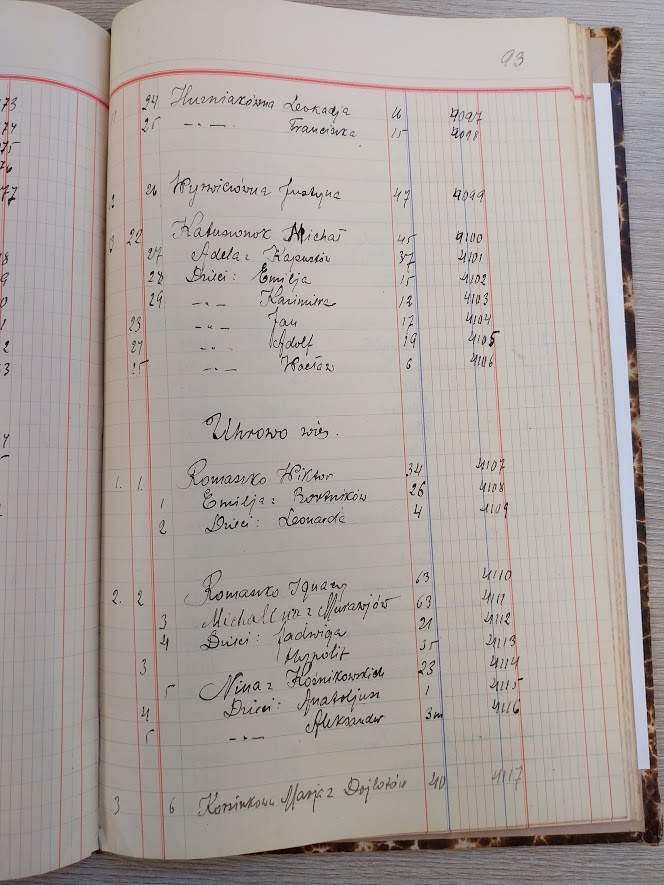 93
24 Hurniakówna Leokadja 4097
25 -"- Franciszka 15 4098
2 26 Wyrwiczówna Justyna 47 4099
3 22 Michał 45 4100
27 Adela z 37 4101
28 Dzieci: Emilja 15 4102
29 -"- Kazimiera 12 4103
23 -"- Jan 17 4104
-"- Adolf 19 4105
25 -"- Wacław 6 4106
Uhrowo wieś.
1. 1 Romaszko Wiktor 34 4107
1 Emilja z 26 4108
2 Dzieci: Leonarda 4 4109
2. 2 Romaszko Ignacy 63 4110
3 Michalina z Murawjów 63 4111
4 Dzieci: Jadwiga 21 4112
3 Hypolit 35 4113
5 Nina z Kośnikowskich 23 4114
4 Dzieci: Anatoljusz 1 4115
5 -"- Aleksander 3m 4116
3 6 Marja z 40 4117
73
74
75
76
77
8
9
0
1
2
3
4